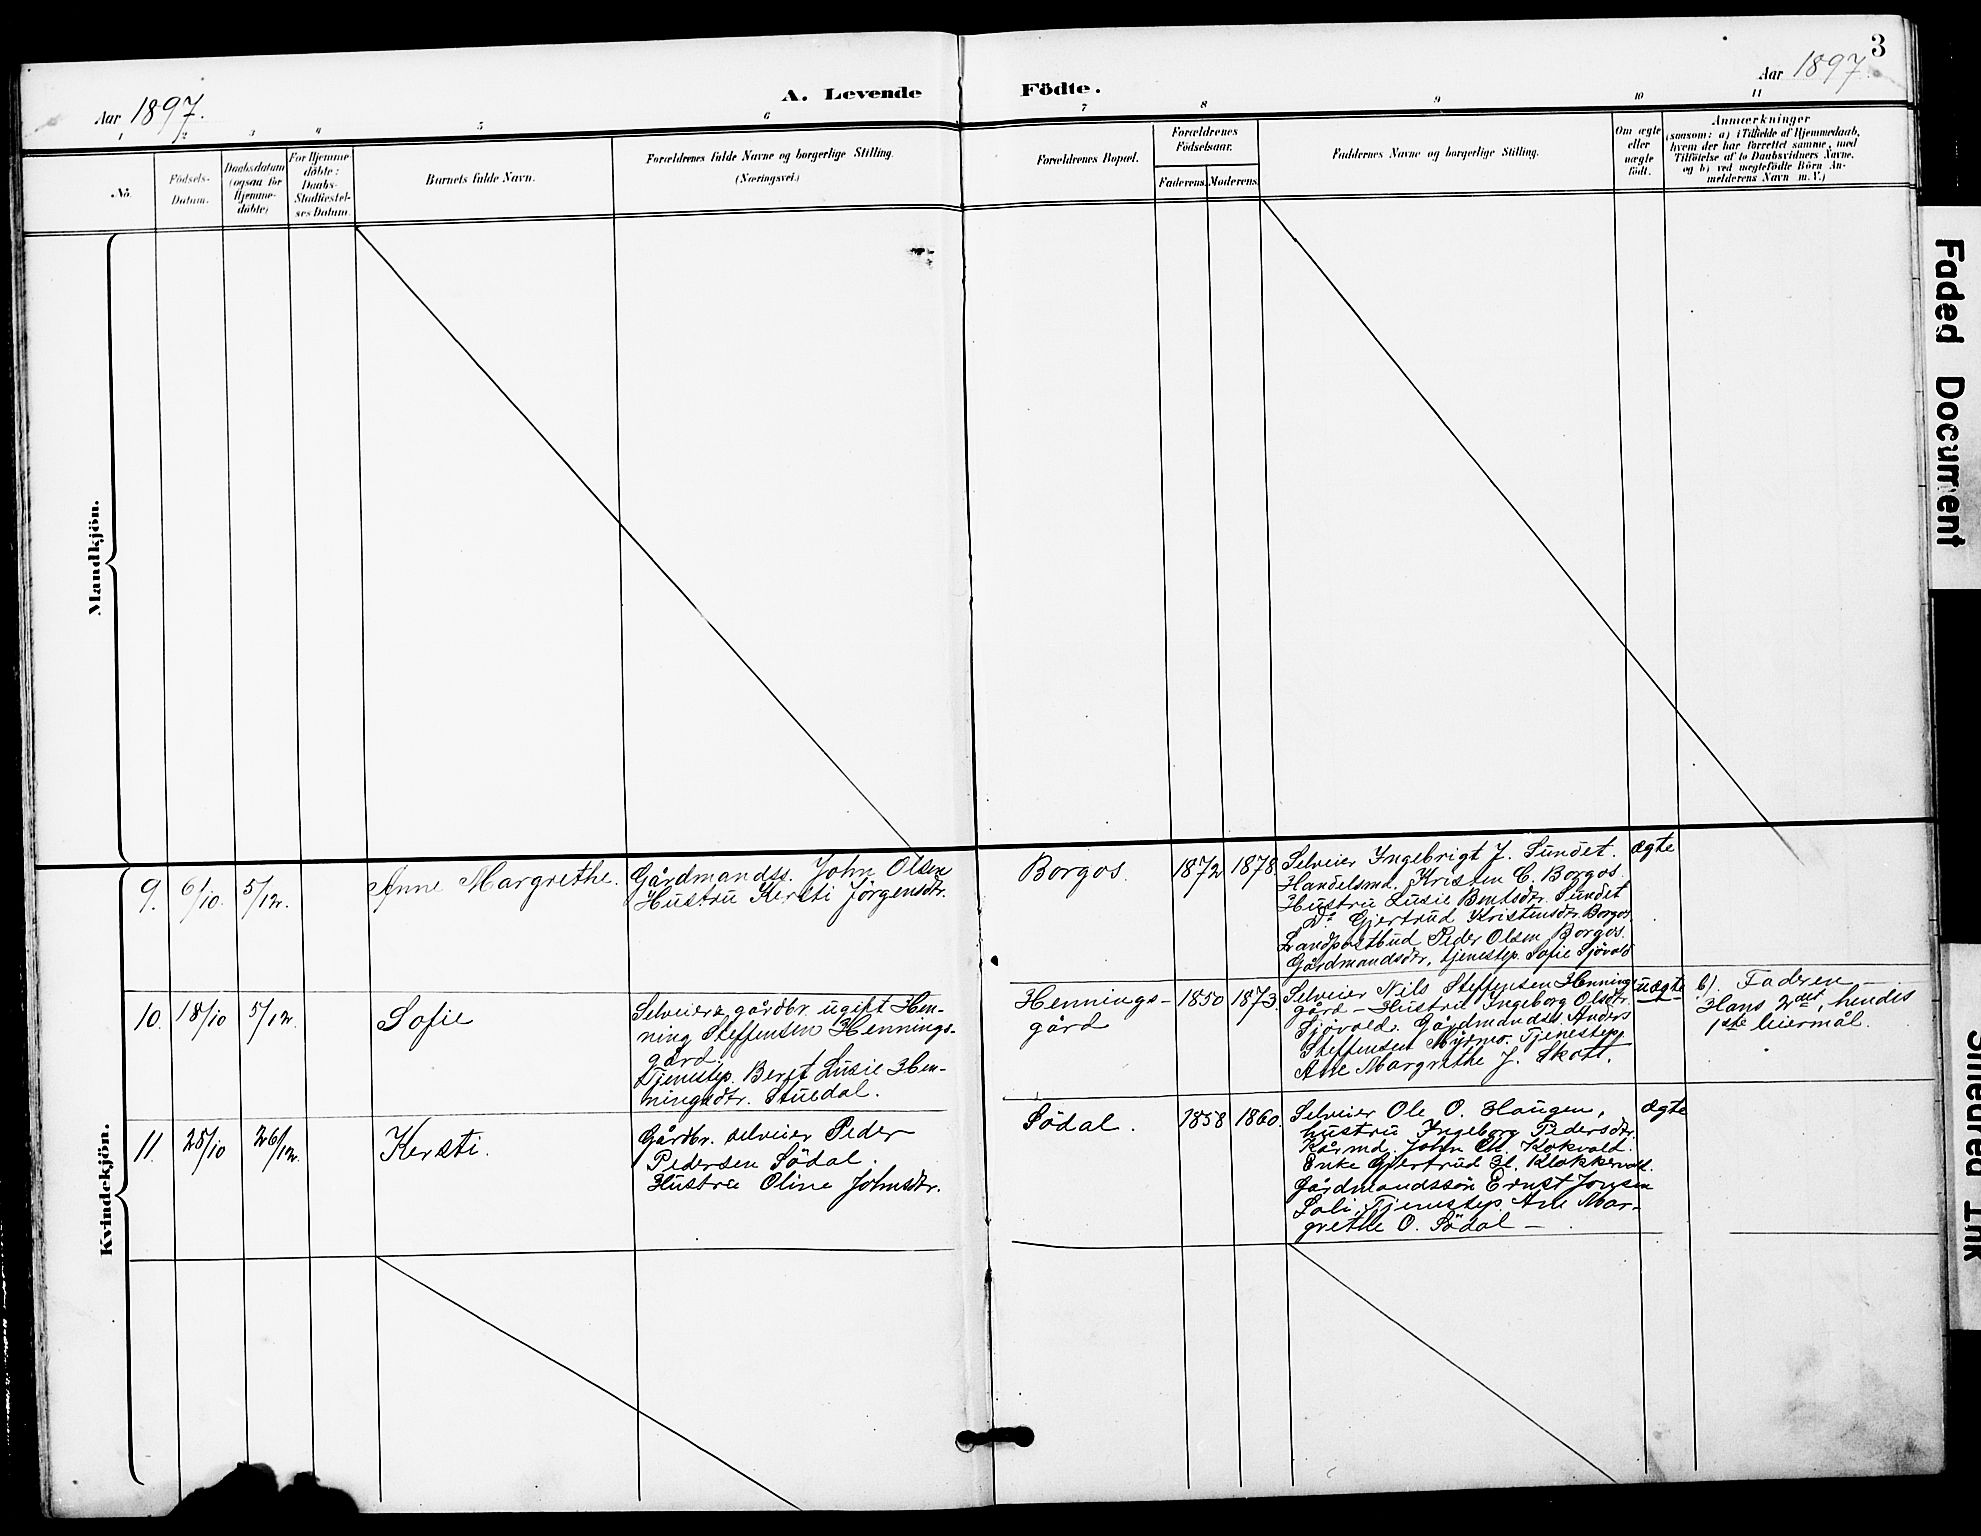 3
Aar 1897.
A. Levende Födte.
Aar 1897.
1 2 3 4 5 6 7 8 9 10 11
No.
Födsels-
Datum.
Daabsdatum
(ogsaa for
Hjemme-
døbte)
For Hjemme
døbte:
Daabs-
Stadfæstel-
ses Datum.
Barnets fulde Navn.
Forældrenes fulde Navne og borgerlige Stilling.
(Næringsvei.)
Forældrenes Bopæl.
Forældrenes
Födselsaar.
Faderens.
Moderens.
Faddernes Navne og borgerlige Stilling.
Om ægte
eller
uægte
födt.
Anmærkninger
(saasom: a) i Tilfælde af Hjemmedaab,
hvem der har forrettet samme, med
Tilföielse af to Daabsvidners Navne,
og b) ved uægtefödte Börn An-
melderens Navn m. V.)
Mandkjön.
Kvindekjön.
9. 6/10. 5/12.
Anne Margrethe.
Gårdmandss. John Olsen
Hustru Kersti Jörgensdtr.
Borgos.
1872 1878
Selveier Ingebrigt J. Sundet.
Handelsmd. Kristen C. Borgos.
Hustru Lusie Bentsdtr. Sundet
Do Gjertrud Kristensdtr. Borgos.
Landpostbud Peder Olsen Borgos.
Gårdmandsdtr, tjenestep. Sofie Sjövold
ægte
10. 18/10 5/12.
Sofie
Selveier, gårdbr. ugift Hen-
ning Steffensen Hennings-
gård.
Tjenestep. Beret Lusie Hen-
ningsdtr. Stuedal.
Hennings-
gård
1850 1873.
Selveier Nils Steffensen Hennings-
gård – Hustru Ingeborg Olsdtr.
Sjövold. Gårdmandss. Anders
Steffensen Myrmo. Tjenestep.
Ane Margrethe J. Skott.
uægte
b). Fadren –
Hans 2den, hendes
1ste leiermål.
11. 25/10 26/12.
Kersti.
Gårdbr. selveier Peder
Pedersen Södal.
Hustru Oline Johnsdtr.
Södal.
1858 1860.
Selveier Ole O. Haugen,
hustru Ingeborg Pedersdtr.
Kårmd. John Kokvold.
Enke Gjertrud H. Klokkervold.
Gårdmandssön Ernst Jonsen
Soli. Tjenestep. Ane Mar-
grethe O. Södal –
ægte
Faded Document
Smeared Ink